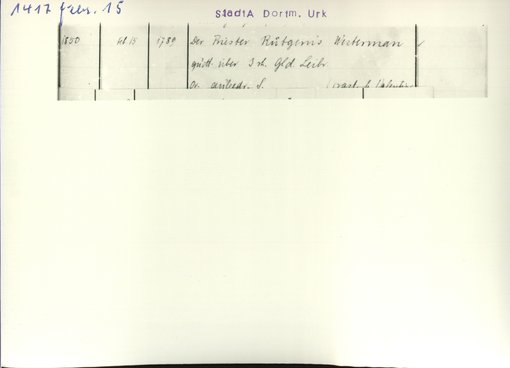 1417 febr. 15
StadtA Dortm. Urk
1850 15 1789 Der Priester Rütgerus Westerman
quitt. über 3 rh. Gld Leibr.
Or. S.